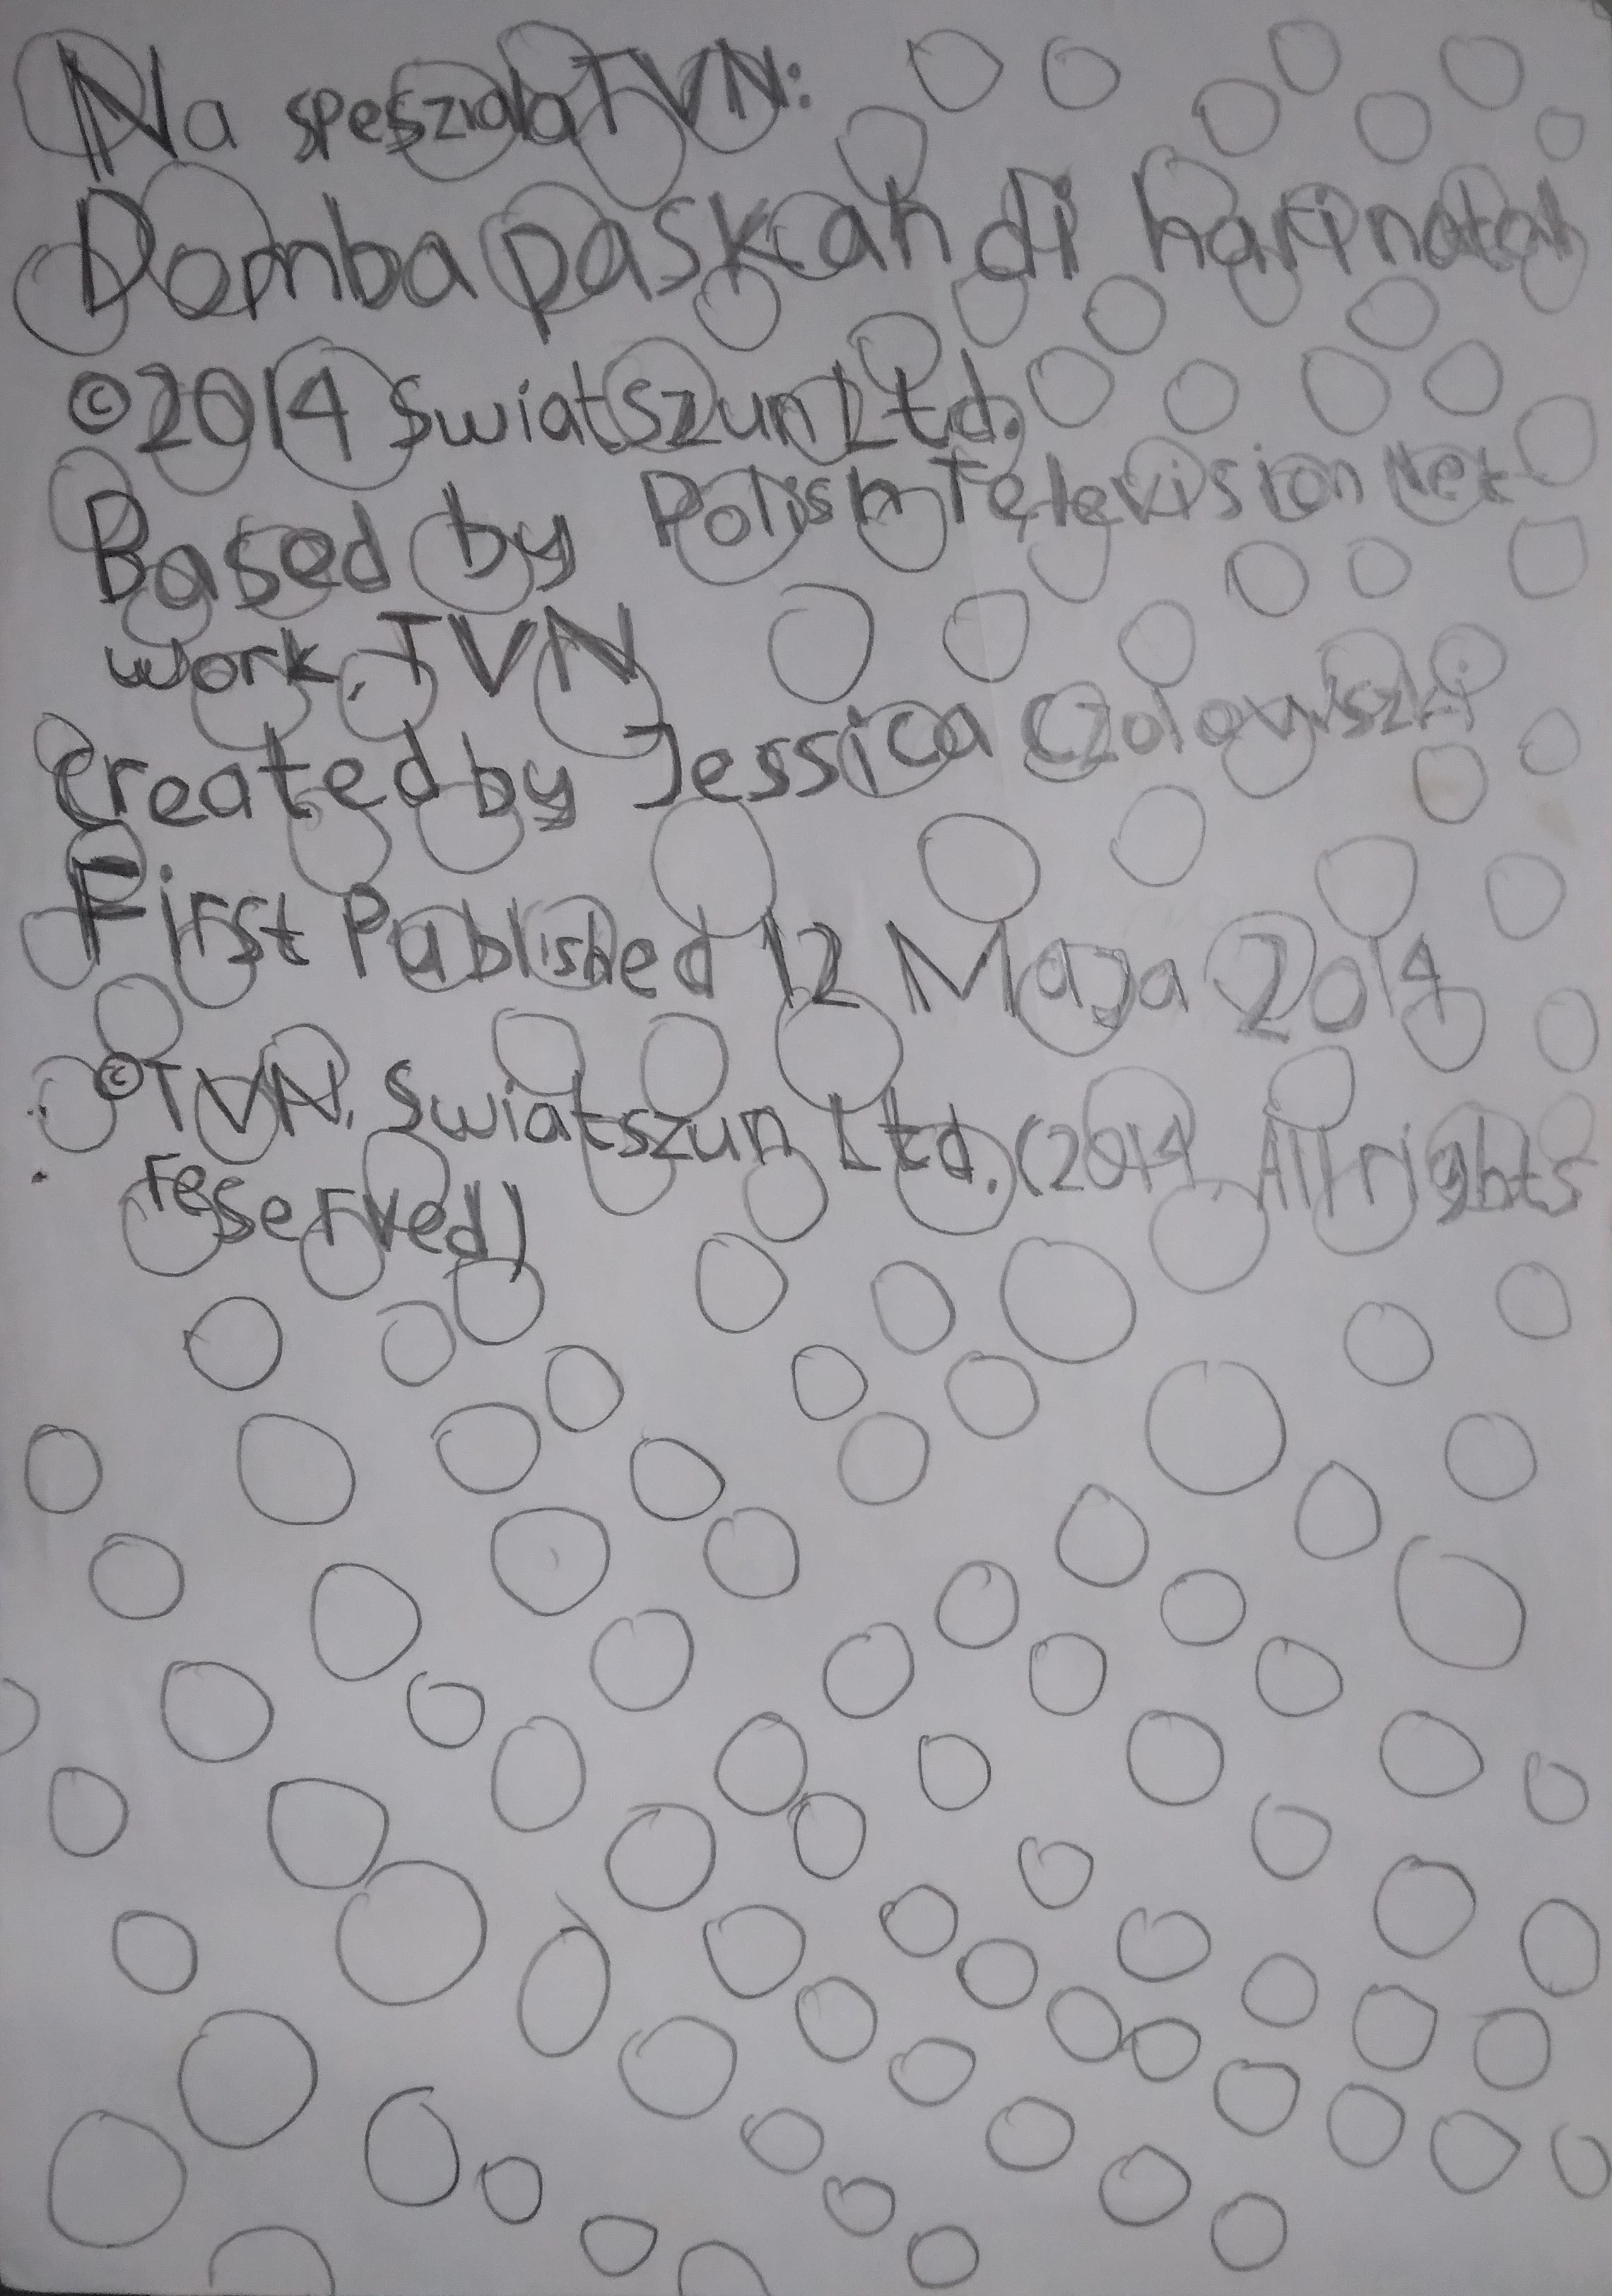 Na spesziala TVN:
Domba paskah di hari natal
©2014 Swiatszun Ltd.
Based by Polish Television Net
work, TVN
Created by Jessica Czolowiszki
First Published 12 Maja 2014
©TVN, Swiatszun Ltd. (2014, All rights
reserved)